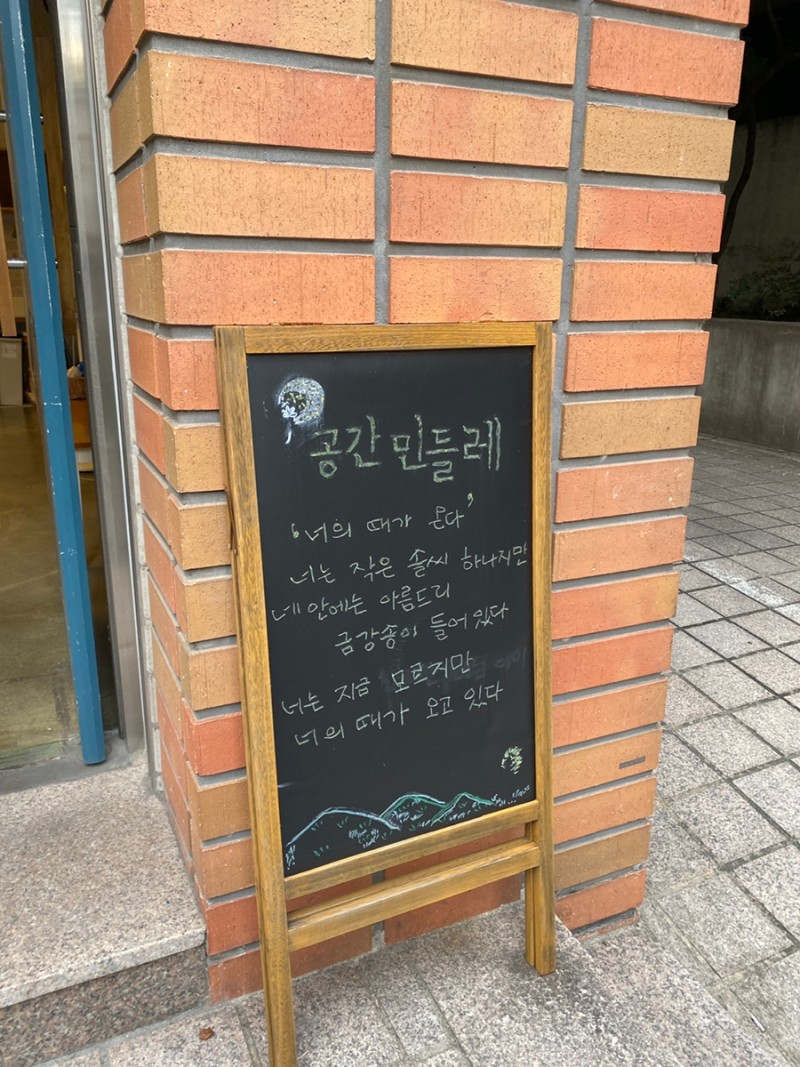 공간민들레
'너의 때가 온다'
너는 작은 솔씨 하나지만
네 안에는 아름드리
금강송이 들어있다
너는 지금 모르지만
너의 때가 오고 있다